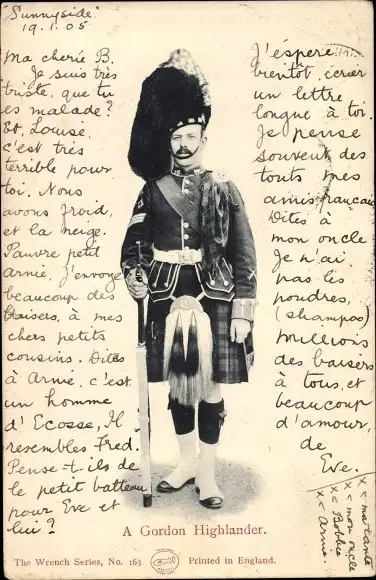 "Sunnyside"
19.1.05
Ma cherie B.
Je suis très
triste, que tu
es malade?
Et, Louise,
c'est très
terrible pour
toi. Nous
avons froid,
et la neige.
Pauvre petit
armie, J'envoye
beaucoup des
baisers, à mes
chers petits
cousins. Dites
à Armie, c'est
un homme
d'Ecosse, Il
resembles Fred.
Pense-t-ils de
le petit batteau
pour Eve et
lui?
J'éspere
bientôt, écrier
un lettre
longue à toi.
Je pense
souvent des
touts mes
amis francais
Dites à
mon oncle
Je n'ai
pas les
poudres,
(shampos)
Millions
des baisers
à tous, et
beaucoup
d'amour,
de
Eve.
x< ma tante
x< mon oncle
x< Bobbie
x< Armie.
A Gordon Highlander.
The Wrench Series, No. 163
Printed in England.